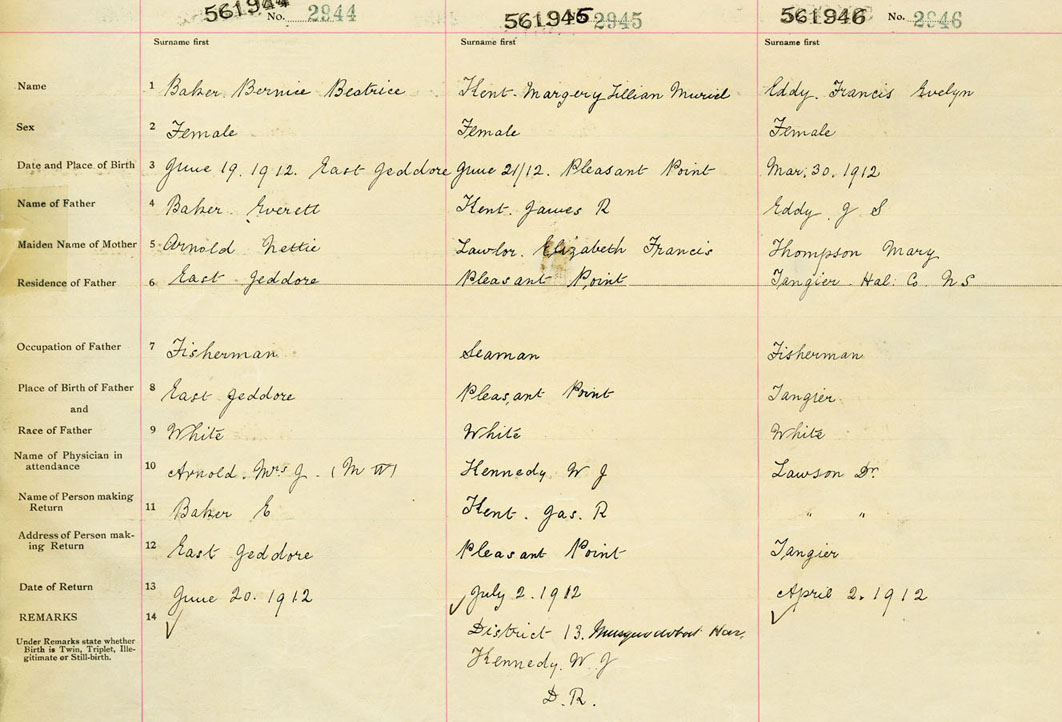 561944 No. 2944 561945 2945 561946 No. 2946
Surname first Surname first Surname first
Name 1 Baker Bernice Beatrice Kent. Margery Lillian Muriel Eddy. Francis Evelyn
Sex 2 Female Female Female
Date and Place of Birth 3 June 19. 1912. East Jeddore June 21/12. Pleasant Point Mar. 30. 1912
Name of Father 4 Baker. Everett Kent. James R Eddy. J S
Maiden Name of Mother 5 Arnold Nettie Lawlor. Elizabeth Francis Thompson Mary
Residence of Father 6 East Jeddore Pleasant Point Tangier. Hal. Co. N S
Occupation of Father 7 Fisherman Seaman Fisherman
Place of Birth of Father 8 East Jeddore Pleasant Point Tangier
and
Race of Father 9 White White White
Name of Physician in
attendance 10 Arnold. Mrs J. (M W) Kennedy W J Lawson Dr.
Name of Person making
Return 11 Baker E Kent. Jas. R " "
Address of Person mak-
ing Return 12 East Jeddore Pleasant Point Tangier
Date of Return 13 June 20. 1912 July 2. 1912 April 2. 1912
REMARKS 14 District 13. Musquodoboit Har.
Under Remarks state whether
Birth is Twin, Triplet, Ille-
gitimate or Still-birth.
Kennedy. W J
D. R.